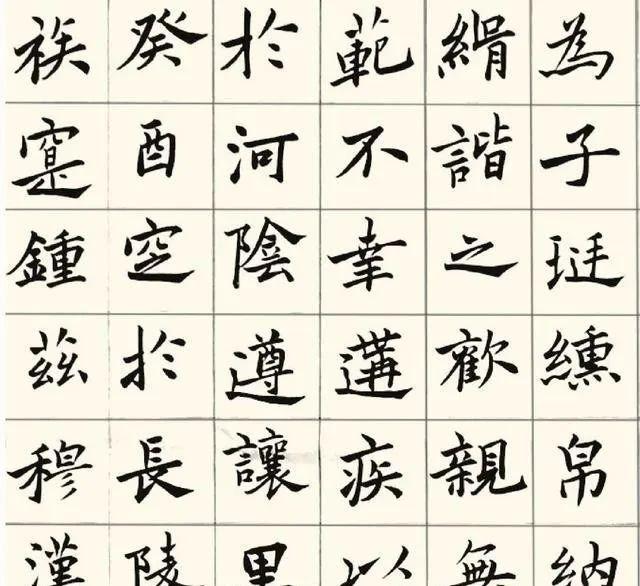 為子珽纁帛納
緝諧之歡親無
範不幸遘疾以
於河陰遵讓里
癸酉窆於長陵
族寔鍾茲穆漢